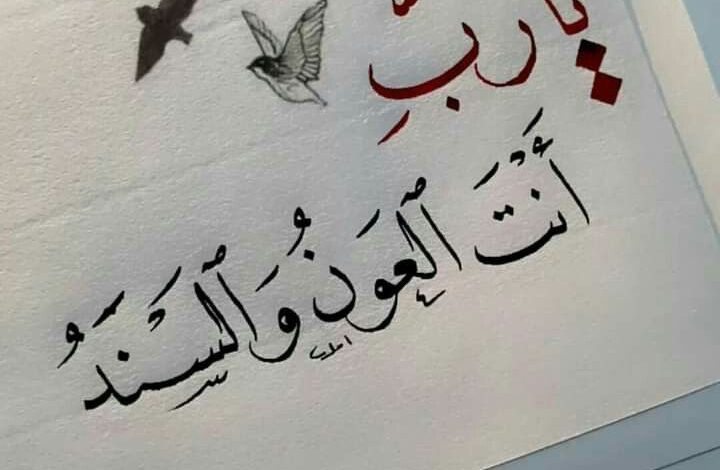 يا ربِّ
أَنْتَ الْعَوْنُ وَالْسَّنَدُ